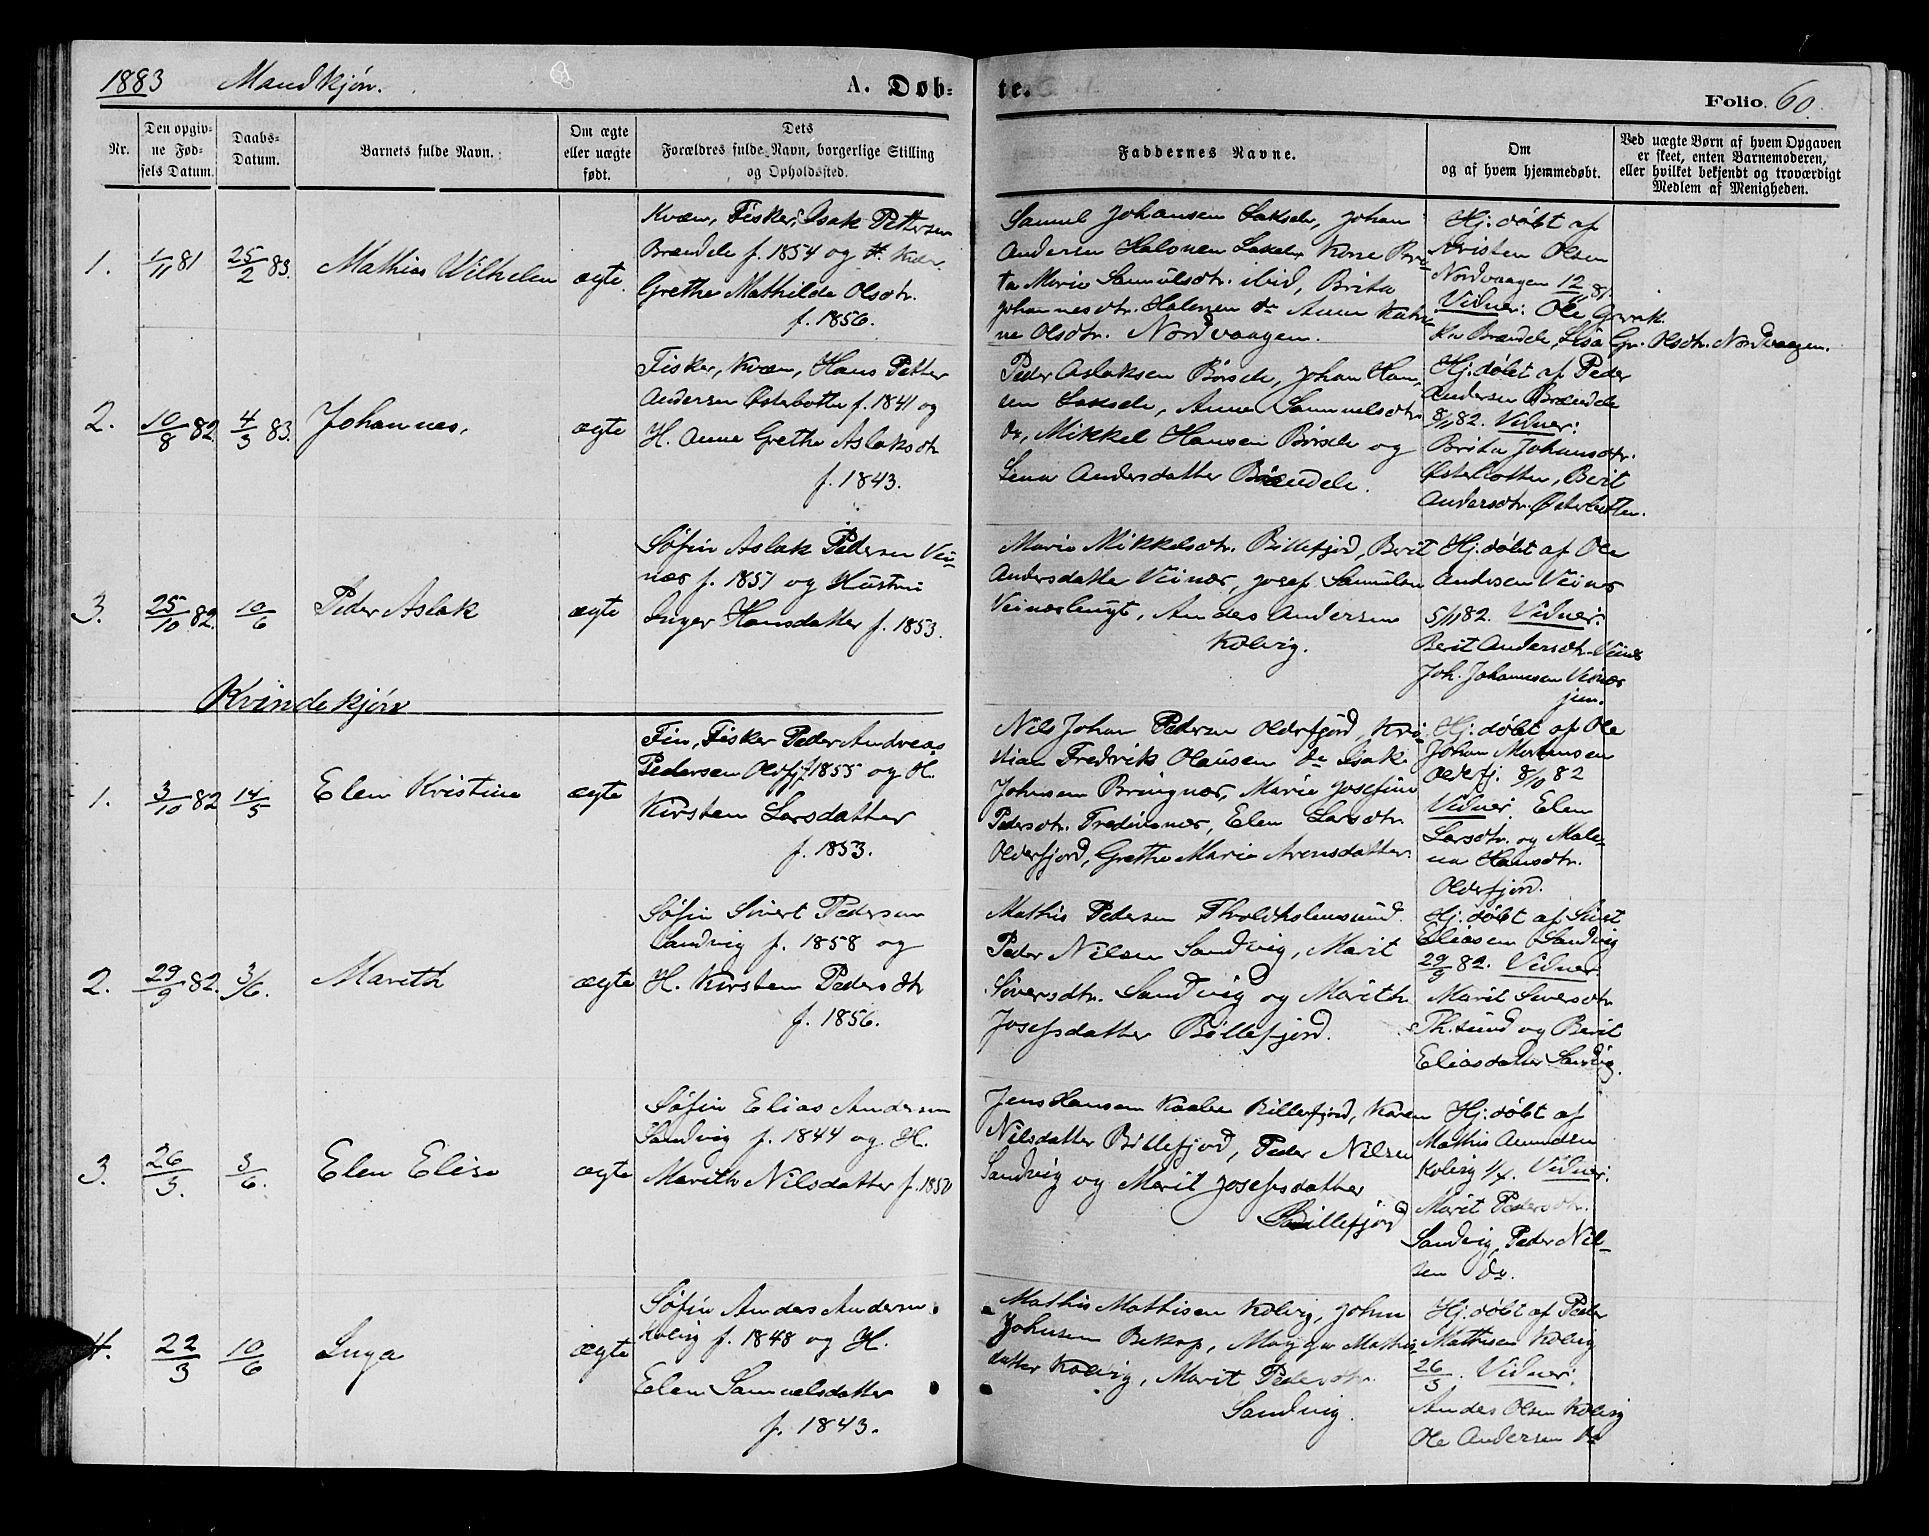 1883 Mandkjøn. A. Døb- te. Folio. 60.
Nr.
Den opgiv-
ne Fød-
sels Datum.
Daabs-
Datum.
Barnets fulde Navn.
Om ægte
eller uægte
født.
Dets
Forældres fulde Navn, borgerlige Stilling
og Opholdssted.
Faddernes Navne.
Om
og af hvem hjemmedøbt.
Ved uægte Børn af hvem Opgaven
er skeet, enten Barnemoderen,
eller hvilket bekjendt og troværdigt
Medlem af Menigheden.
1. 1/11 81 25/2 83. Mathias Wilhelm ægte.
Kvæn, Fisker, Isak Pettersen
Brændele f. 1854 og H.
Grethe Mathilde Olsdtr.
f. 1856.
Samul Johansen Lakselv, Johan
Andersen Halonen Lakselv, Kone Bri-
ta Maria Samulsdtr. ibid, Brita
Johannesdtr. Halonen do Anna Katri-
ne Olsdtr. Nordvaagen.
Hj. døbt af
Kristen Olsen
Nordvaagen 12/11 81
Vidner: Ole
Brændele, Lisa Gr. Olsdtr. Nordvaagen.
2. 10/8 82. 4/3 83. Johannes, ægte
Fisker, Kvæn, Hans Petter
Andersen Østerbotten f. 1841 og
H. Anna Grethe Aslaksdtr
f. 1843.
Peder Aslaksen Børselv, Johan Han-
sen Lakselv, Anna Samuelsdtr
do, Mikkel Hansen Børselv og
Lena Andersdatter Brændele.
Hj. døbt af Peder
Andersen Brændele
8/11 82. Vidner:
Brita Johansdtr.
Østerbotten, Berit
Andersdtr. Østerbotten.
3. 25/10 82. 10/6 Peder Aslak ægte
Søfin Aslak Pedersen Vei-
nær f. 1857 og Hustru
Inger Hansdatter f. 1853.
Marie Mikkelsdtr. Billefjord, Berit
Andersdatter Veinær, Josef Samulsen
Veinærbugt, Anders Andersen
Kolvig.
Hj. døbt af Ole
Andersen Veinær
5/11 82. Vidner:
Berit Andersdtr. Veinær
Joh. Johannesen Veinær
jun.
Kvindekjøn
1. 3/10 82 14/5 Elen Kristine ægte
Fin, Fisker Peder Andreas
Pedersen Oldfj. f. 1855 og H.
Kirsten Larsdatter
f. 1853.
Nils Johan Pedersen Olderfjord, Kri-
stian Fredrik Olausen do Isak
Johnsen Bringnær, Marie Josefine
Pedersdtr. , Elen Larsdtr
Olderfjord, Grethe Marie Arensdatter.
Hj. døbt af Ole
Johan Mortensen
Olderfj. 8/10 82
Vidner: Elen
Larsdtr. og Male-
na Hansdtr.
Olderfjord.
2. 29/9 82. 3/6. Marith ægte
Søfin Sivert Pedersen
Sandvig f. 1858 og
H. Kirsten Pedersdtr
f. 1856.
Mathis Pedersen Tholdholmsund.
Peder Nilsen Sandvig, Marit
Siversdtr. Sandvig og Marith
Josefsdatter Billefjord.
Hj. døbt af Sivert
Eliasen Sandvig
29/9 82. Vidner:
Marit Siversdtr
Th.sund og Berit
Eliasdatter Sandvig.
3. 26/3. 3/6. Elen Elisa ægte
Søfin Elias Andersen
Sandvig f. 1844 og H.
Marith Nilsdatter f. 1850
Jens Hansen Kaaben Billefjord, Karen
Nilsdatter Billefjord, Peder Nilsen
Sandvig og Marit Josefsdatter
Billefjord
Hj. døbt af
Mathis Amundsen
Kolvig 1/4. Vidner:
Marit Pedersdtr.
Sandvig, Peder Nil-
sen do.
4. 22/3 10/6 Inga ægte
Søfin Anders Andersen
Kolvig f. 1848 og H.
Elen Samuelsdatter
f. 1843.
Mathis Mathisen Kolvig, John
Johnsen Bekop, Mathis-
datter Kolvig, Marit Pedersdtr.
Sandvig.
Hj. døbt af Peder
Mathisen Kolvig
26/3. Vidner:
Anders Olsen Kolvig
Ole Andersen do